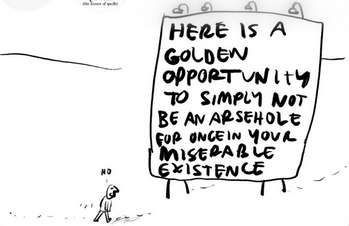 (the wizard of spoilt)
HERE IS A
GOLDEN
OPPORTUNITY
TO SIMPLY NOT
BE AN ARSEHOLE
FOR ONCE IN YOUR
MISERABLE
EXISTENCE
NO